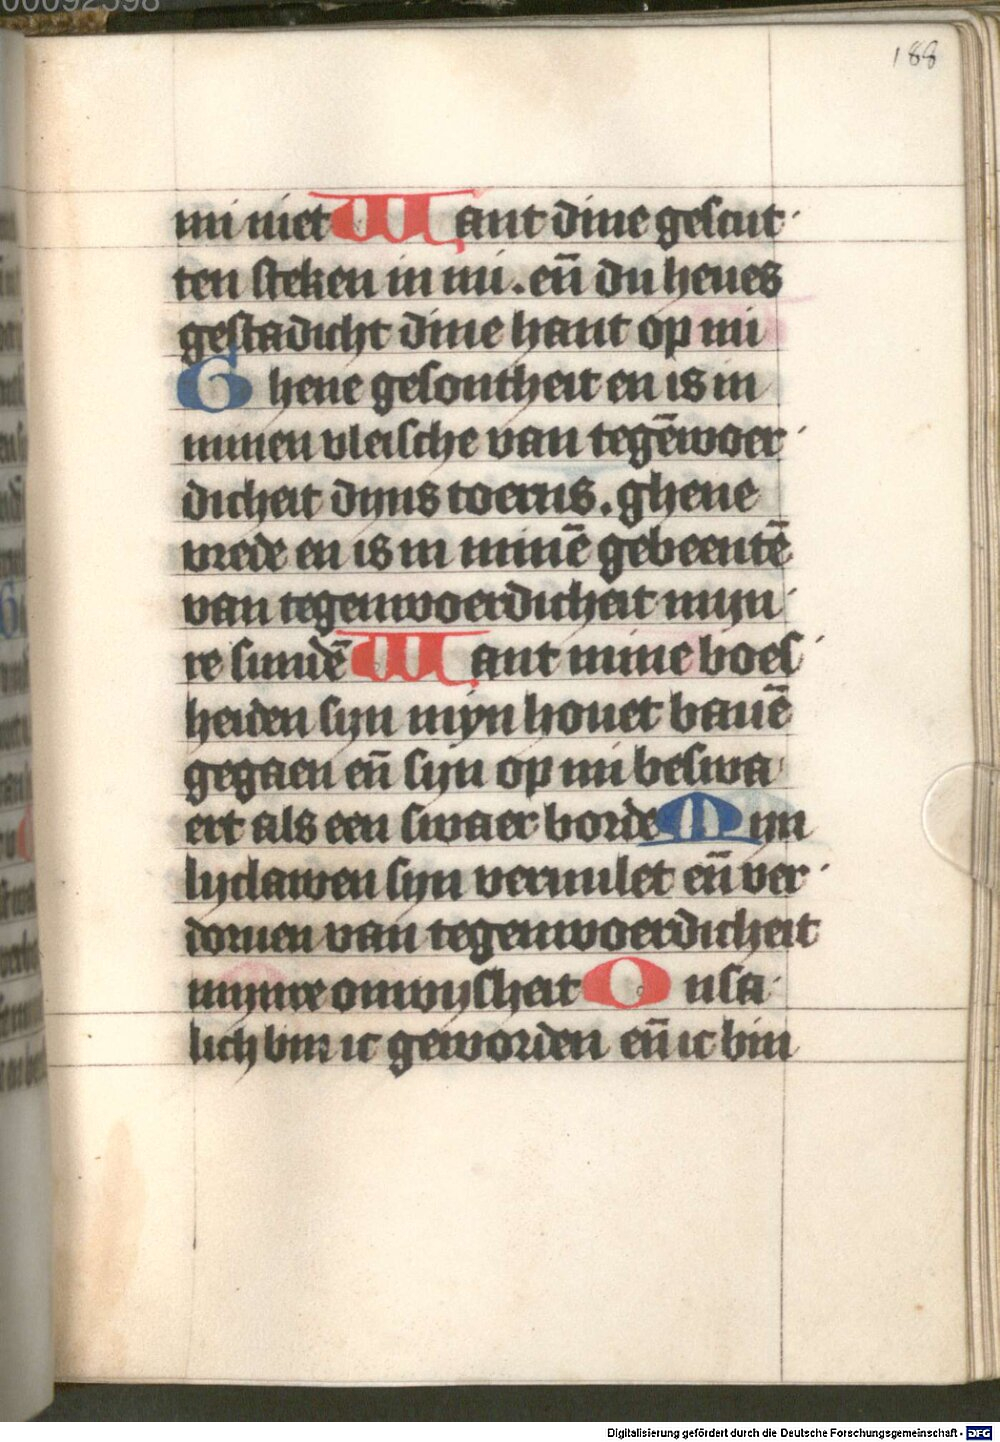 188
mi niet Want dine gescut
ten steken in mi. eñ du heues
gestadicht dine hant op mi
Ghene gesontheit en is in
minen vleische van tegēwoer
dicheit dijns toerns. ghene
vrede en is in minē gebeentē
van tegenwoerdicheit mijn
re sundē Want mine boes
heiden sijn mijn houet bauē
gegaen eñ sijn op mi beswa
ert als een swaer borde Mijn
lijclawen sijn veruulet eñ ver
doruen van tegenwoerdicheit
mijnre onwijsheit Onsa
lich bin ic geworden eñ ic bin
Digitalisierung gefördert durch die Deutsche Forschungsgemeinschaft - DFG